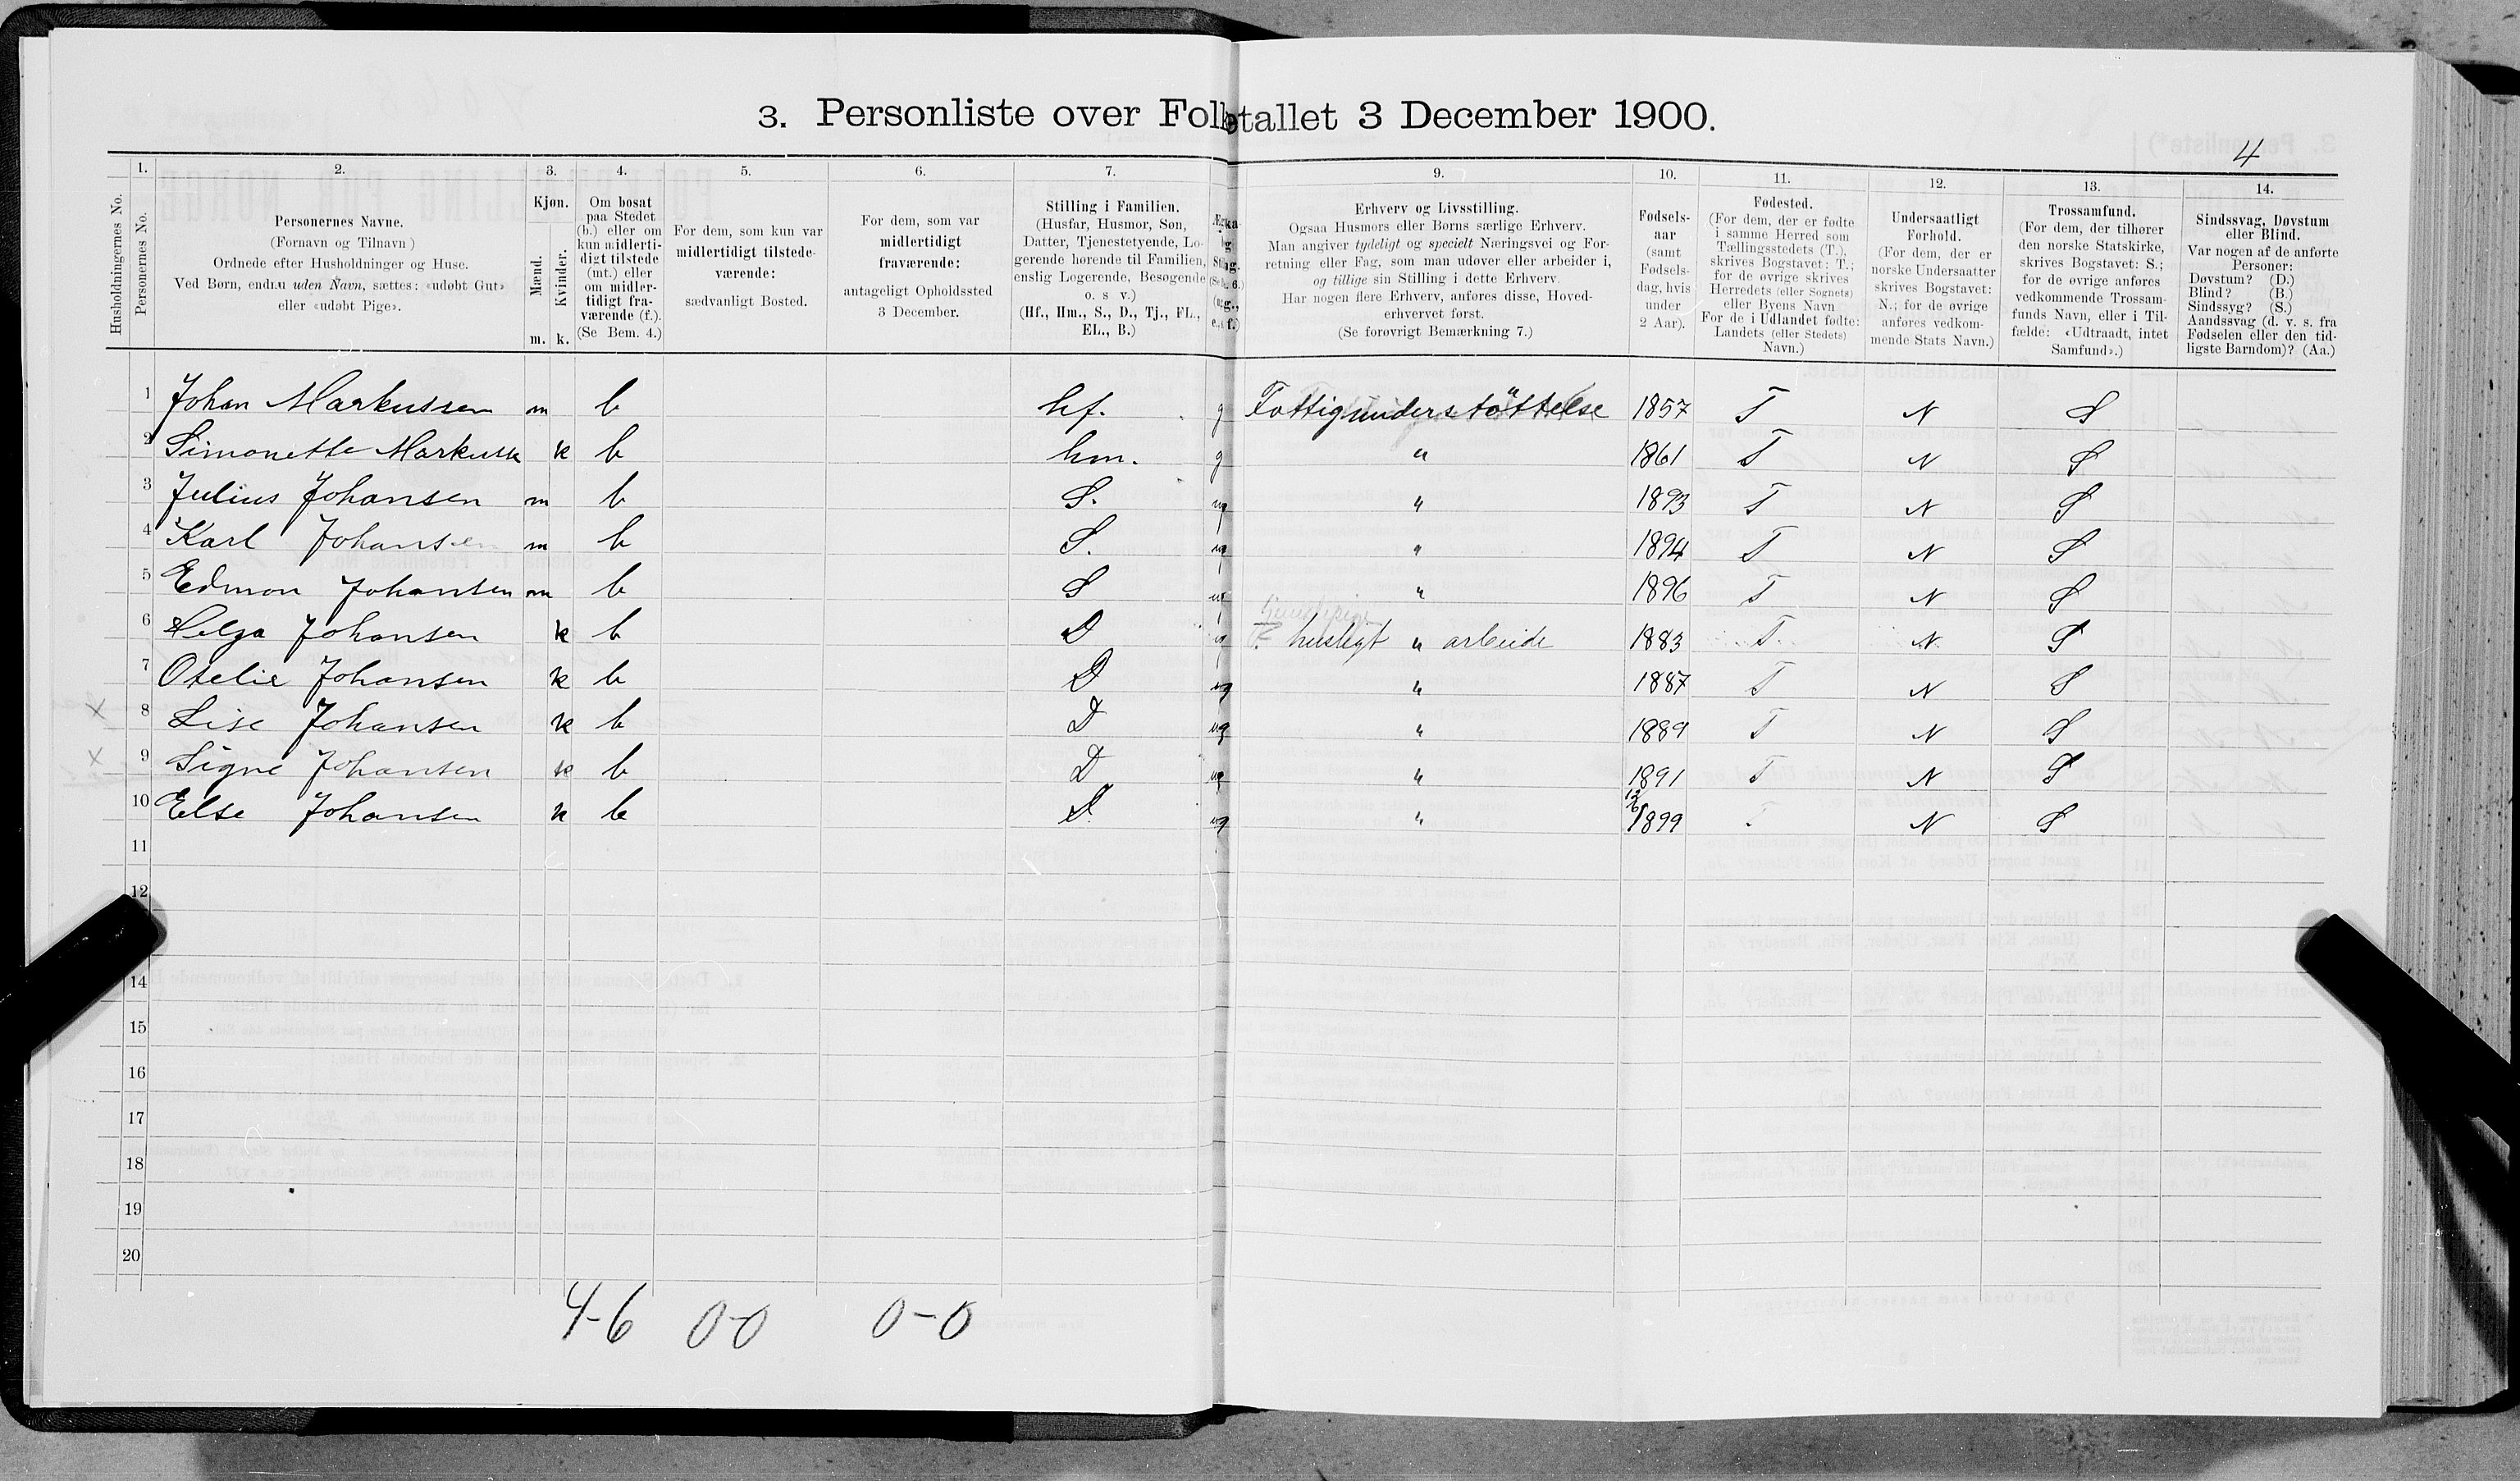 3. Personliste over Folketallet 3 December 1900.
4
1. 2. 3. 4. 5. 6. 7. 9. 10. 11. 12. 13. 14.
Husholdningernes No.
Personernes No.
Personernes Navne.
(Fornavn og Tilnavn)
Ordnede efter Husholdninger og Huse.
Ved Børn, endnu uden Navn, sættes: «udøbt Gut»
eller «udøbt Pige».
Kjøn.
Mænd.
Kvinder.
m. k.
Om bosat
paa Stedet
(b.) eller om
kun midlerti-
digt tilstede
(mt.) eller
om midler-
tidigt fra-
værende (f.).
(Se Bem. 4.)
For dem, som kun var
midlertidigt tilstede-
værende:
sædvanligt Bosted.
For dem, som var
midlertidigt
fraværende:
antageligt Opholdssted
3 December.
Stilling i Familien.
(Husfar, Husmor, Søn,
Datter, Tjenestetyende, Lo-
gerende hørende til Familien,
enslig Logerende, Besøgende
o. s v.)
(Hf., Hm., S., D., Tj., FL.,
EL., B.)
Erhverv og Livsstilling.
Ogsaa Husmors eller Børns særlige Erhverv.
Man angiver tydeligt og specielt Næringsvei og For-
retning eller Fag, som man udøver eller arbeider i,
og tillige sin Stilling i dette Erhverv.
Har nogen flere Erhverv, anføres disse, Hoved-
erhvervet først.
(Se forøvrigt Bemærkning 7.)
Fødsels-
aar
(samt
Fødsels-
dag, hvis
under
2 Aar).
Fødested.
(For dem, der er fødte
i samme Herred som
Tællingsstedets (T.),
skrives Bogstavet: T.;
for de øvrige skrives
Herredets (eller Sognets)
eller Byens Navn
For de i Udlandet fødte:
Landets (eller Stedets)
Navn.)
Undersaatligt
Forhold.
(For dem, der er
norske Undersaatter
skrives Bogstavet:
N.; for de øvrige
anføres vedkom-
mende Stats Navn.)
Trossamfund.
(For dem, der tilhører
den norske Statskirke,
skrives Bogstavet: S.;
for de øvrige anføres
vedkommende Trossam-
funds Navn, eller i Til-
fælde: «Udtraadt, intet
Samfund».)
Sindssvag, Døvstum
eller Blind.
Var nogen af de anførte
Personer:
Døvstum? (D.)
Blind? (B.)
Sindssyg? (S.)
Aandssvag (d. v. s. fra
Fødselen eller den tid-
ligste Barndom)? (Aa.)
1 Johan Markussen m b hf. g Fattigunderstøttelse 1857 T N S
2 Simonette Markuss k b hm. g " 1861 T N S
3 Julius Johansen m b S. ug " 1893 T N S
4 Karl Johansen m b S. ug " 1894 T N S
5 Edmon Johansen m b S ug " 1896 T N S
6 Helga Johansen k b D ug husligt " arbeide 1883 T. N S
7 Otelie Johansen k b D ug " 1887 T N S
x 8 Lise Johansen k b D ug " 1889 T N S
x 9 Signe Johansen k b D ug " 1891 T N S
10 Else Johansen k b D. ug " 12/6 1899 T N S
11
12
14
15
16
17
18
19
20
4-6 0-0 0-0